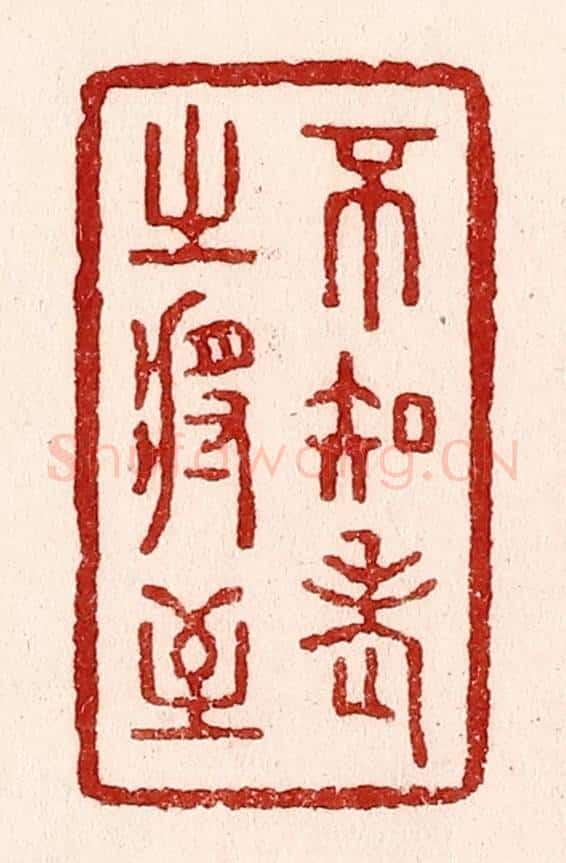 不知老
之将至
Shufawang.CN